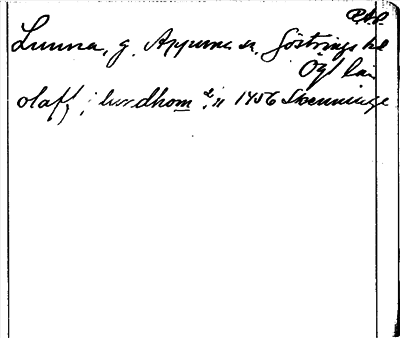 P.A.P.
Lunna, g. Appuna sn. Göstrings hd
Ög län
olaff i lundhom 2/11 1456 Skenninge